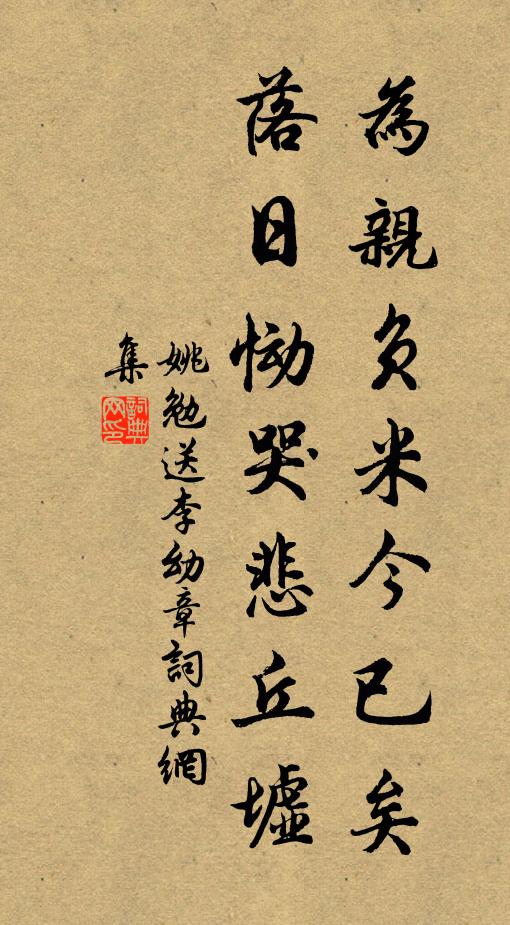 為親負米今已矣
落日慟哭悲丘墟
姚勉送李幼章詞典網
集
詞典網印